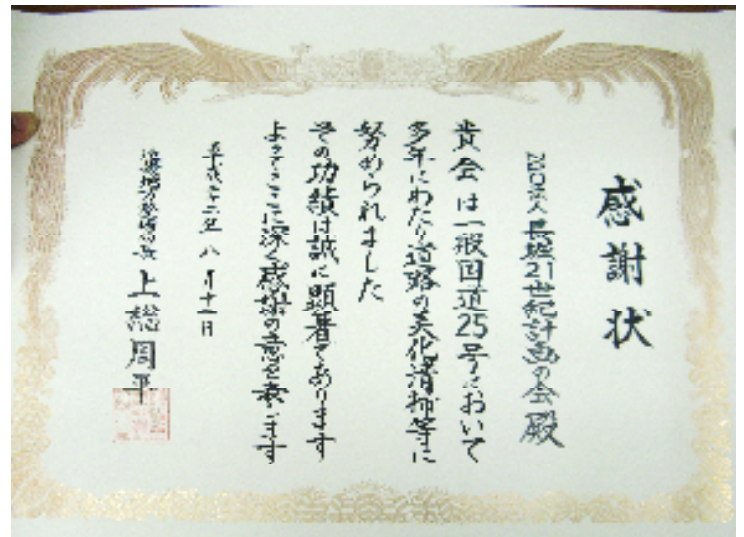 感謝状
NPO法人 長堀21世紀計画の会 殿
貴会は一般国道25号において
多年にわたり道路の美化清掃等に
努められました
その功績は誠に顕著であります
よってここに深く感謝の意を表します
平成二十二年 八月十一日
上総周平